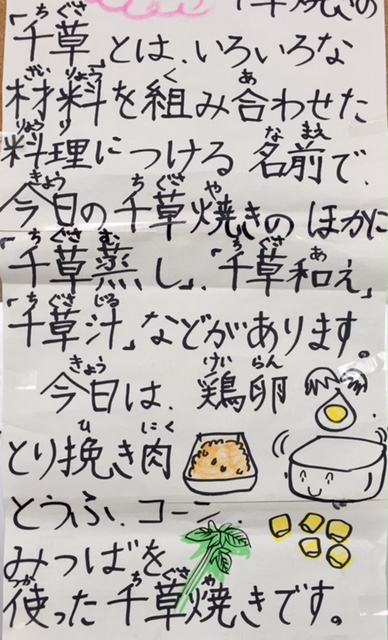 千草焼きの
「千草」とは、いろいろな
材料を組み合わせた
料理につける名前で、
今日の千草焼きのほかに
「千草蒸し」、「千草和え」
「千草汁」などがあります。
今日は、鶏卵
とり挽き肉
とうふ、コーン、
みつばを
使った千草焼きです。